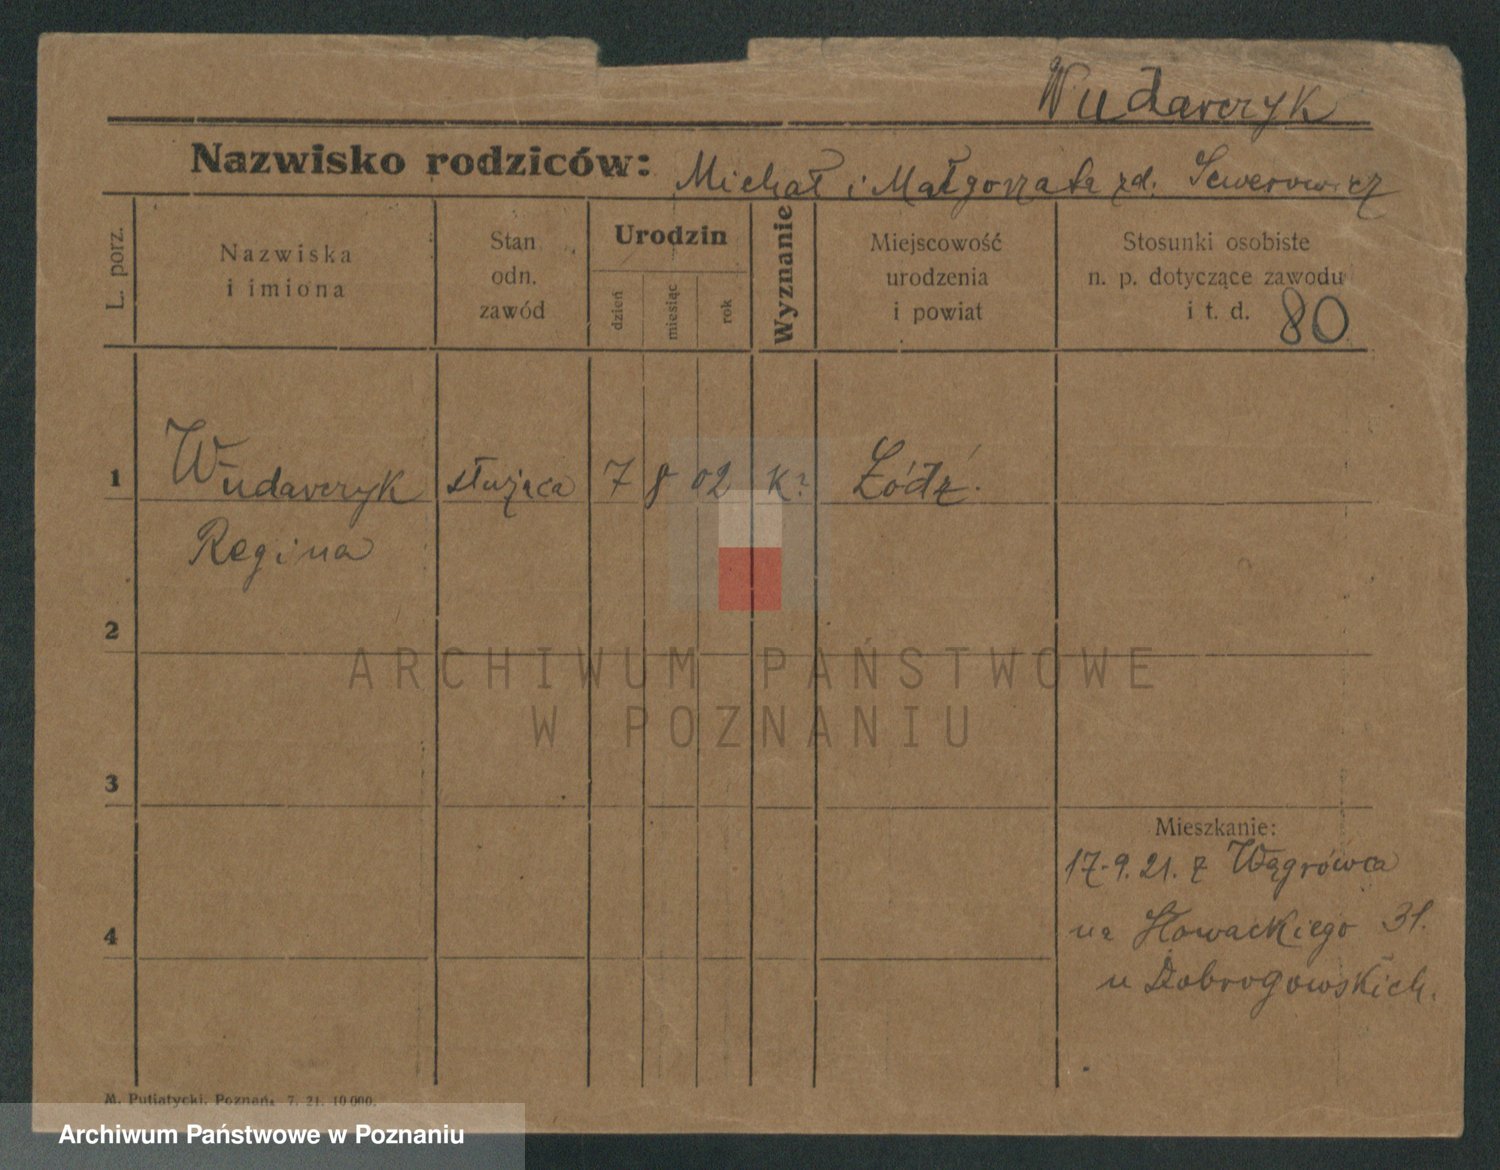 Wudarczyk
Nazwisko rodziców: Michał i Małgorzata zd. Sewerowicz
L. porz.
Nazwiska
i imiona
Stan
odn.
zawód
Urodzin
dzień
miesiąc
rok
Wyznanie
Miejscowość
urodzenia
i powiat
Stosunki osobiste
n. p. dotyczące zawodu
i t. d. 80
1 Wudarczyk służąca 7 8 02 K. Łódź.
Regina
2
3
4
Mieszkanie:
17.9.21. z Wągrówca
na Słowackiego 31.
u Dobrogowskich.
ARCHIWUM PAŃSTWOWE
W POZNANIU
M. Putiatycki, Poznań, 7. 21. 10 000.
Archiwum Państwowe w Poznaniu